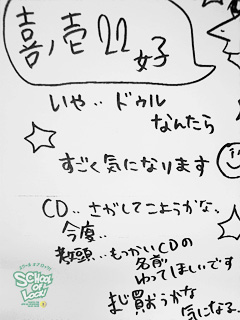 喜ノ壱22
女子
いや‥ドゥル
なんたら
すごく気になります
CD‥さがしてこようかな、
今度‥
教頭‥もっかいCDの
名前
ゆってほしいです
まじ買おうかな
気になる
SCHOOL
OF
LOCK!